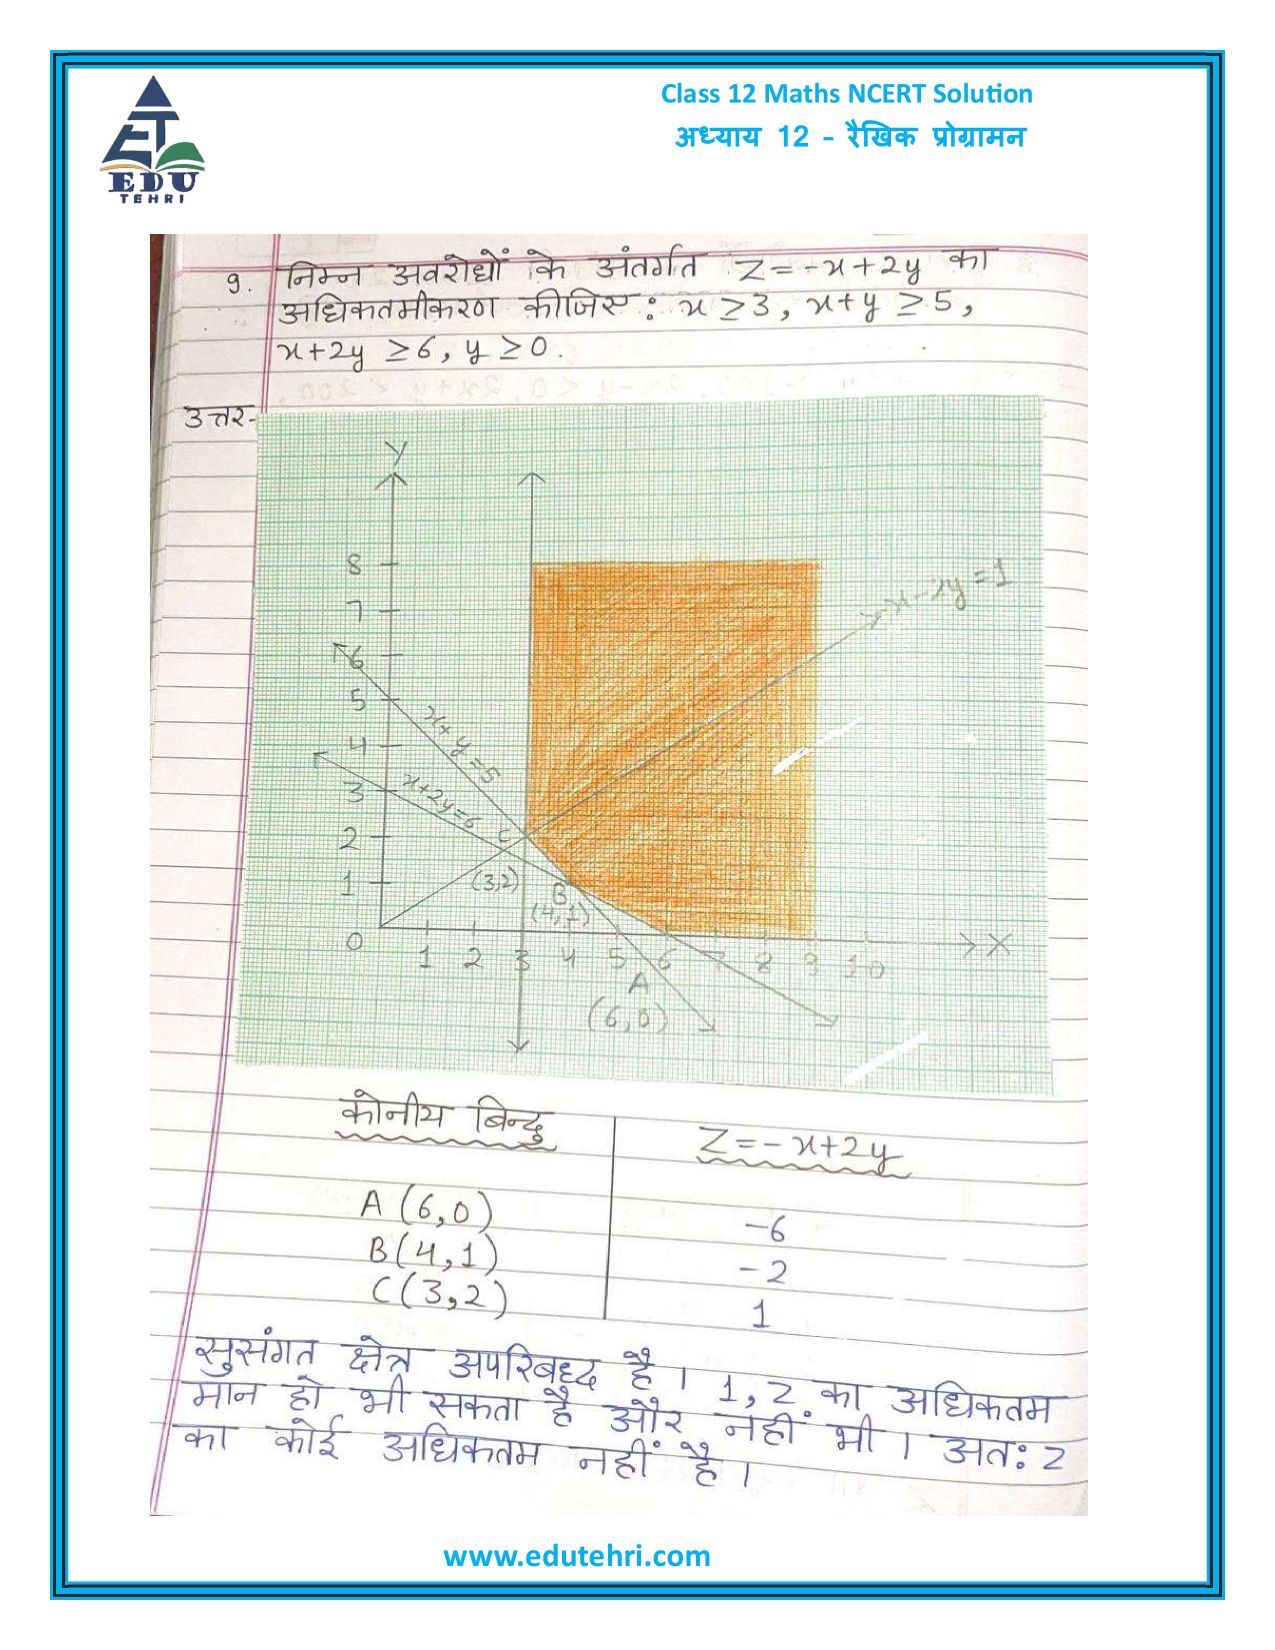 Class 12 Maths NCERT Solution
अध्याय 12 - रैखिक प्रोग्रामन
EDU
TEHRI
9. निम्न अवरोधों के अंतर्गत Z=-x+2y का
अधिकतमीकरण कीजिए: x≥3, x+y≥5,
x+2y≥6, y≥0.
उत्तर-
Y
8
7
6
5
4
3
2
1
0
x-2y=1
x+y=5
x+2y=6
C
(3,2)
B
(4,1)
1 2 3 4 5 6 7 8 9 10 X
A
(6,0)
कोनीय बिन्दु Z=-x+2y
A(6,0) -6
B(4,1) -2
C(3,2) 1
सुसंगत क्षेत्र अपरिबद्ध है। 1, Z का अधिकतम
मान हो भी सकता है और नहीं भी। अतः Z
का कोई अधिकतम नहीं है।
www.edutehri.com